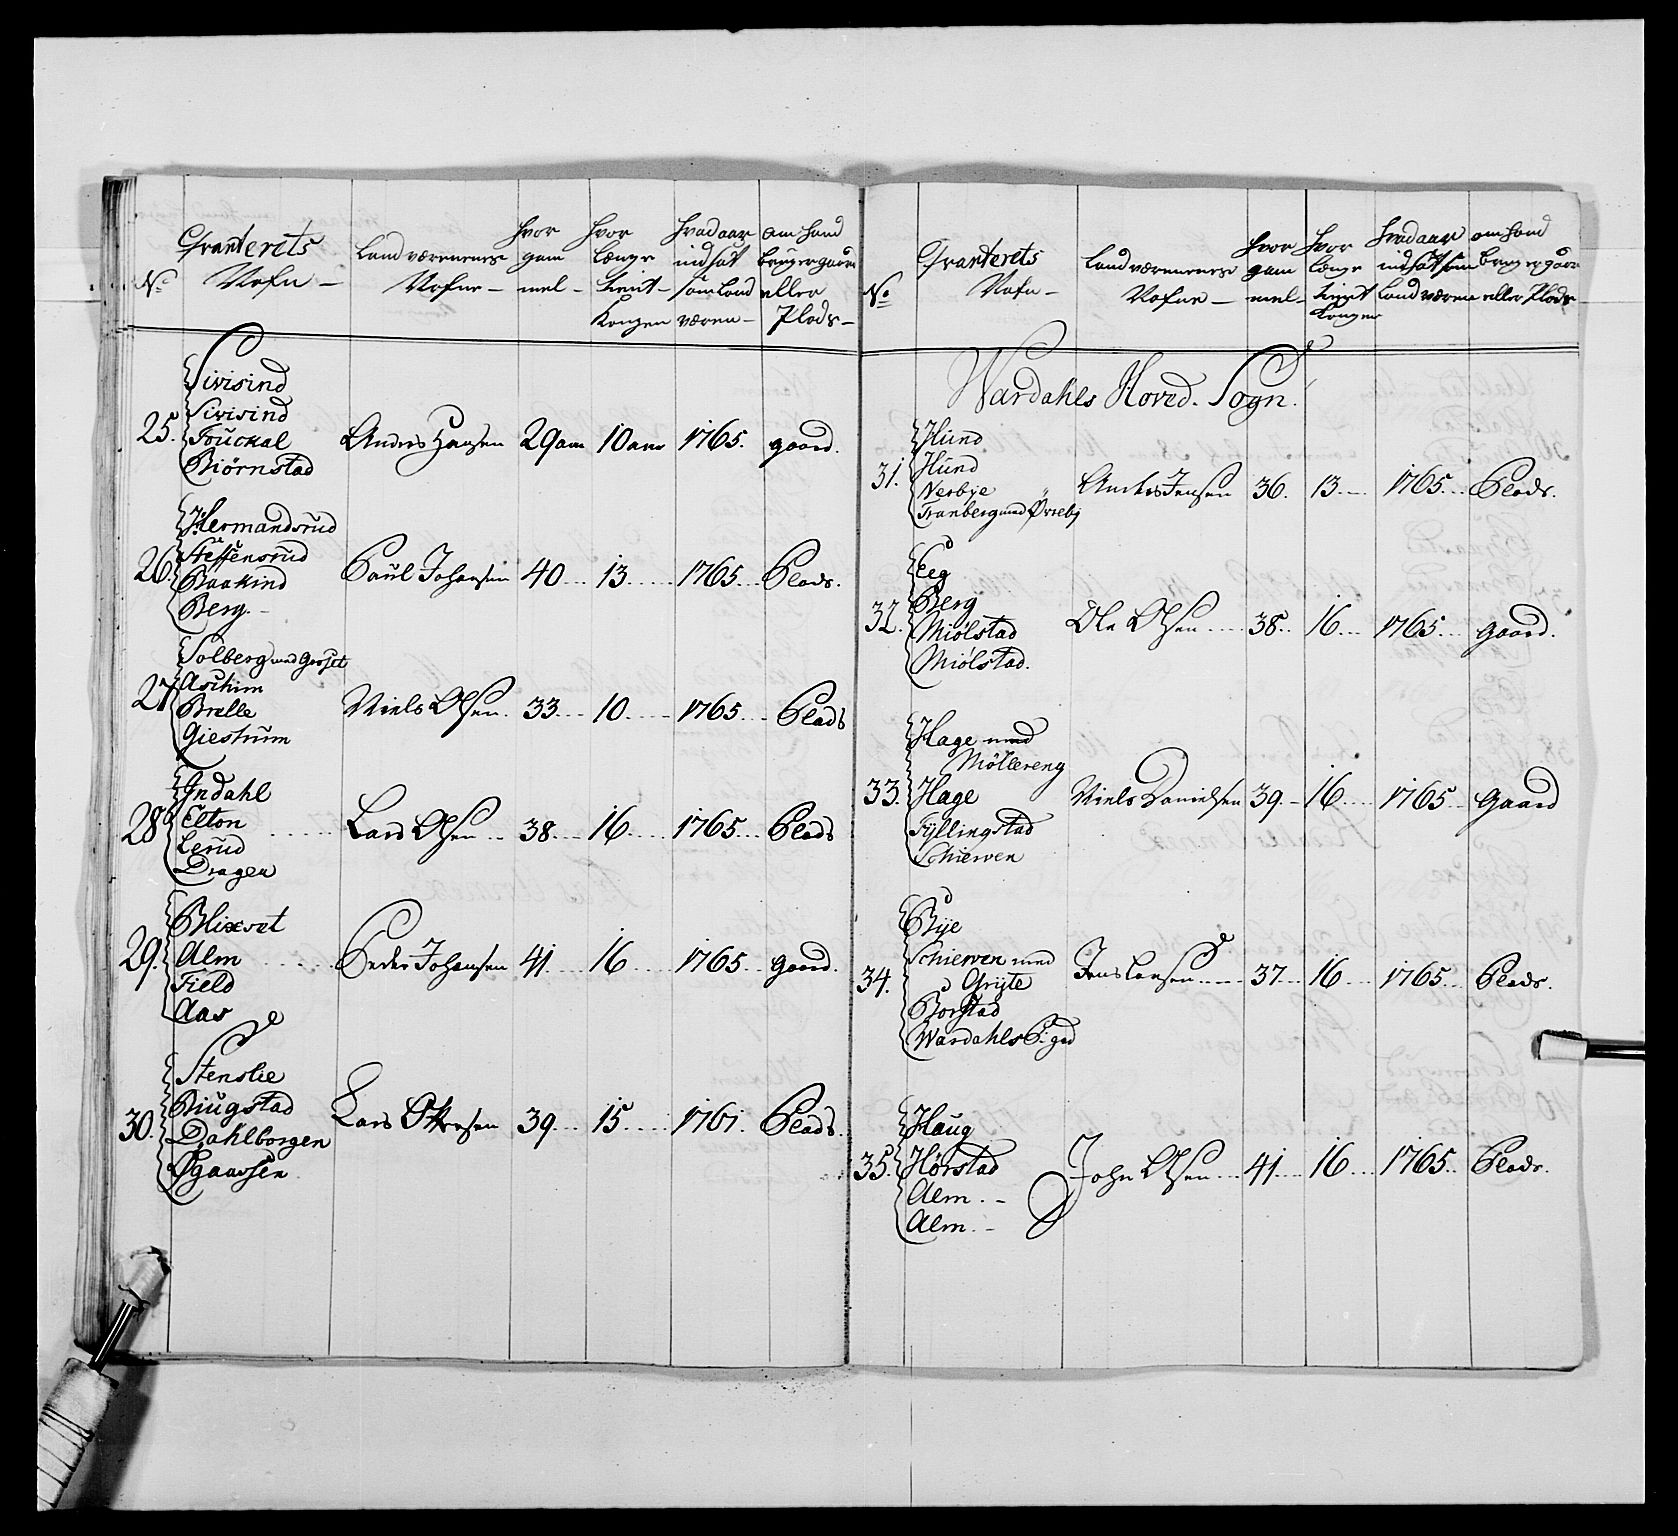 No
Qvarterets
Nafn —
Landværnenes
Nafne —
hvor
gam
mel —
hvor
længe
tient —
Kongen
hvad aar
indsat
som land
væren —
om hand
bruger gaard
eller
Plads —
25.
Sivisind
Sivisind
Fouckal
Biørnstad
Anders Hansen 29 aar 10 aar 1765. gaard.
26.
Hermandsrud
Steffensrud
Baakind
Berg. —
Paul Johansen 40 13 1765 Plads.
27
Solberg med
Aschim
Brelle
Giestrum
Niels Olsen. 33 10 1765 Plads
28
Indahl
Elton
Lerud
Dragen
Lars Olsen 38 16 1765 Plads
29.
Blixret
Alm
Field
Aas
Peder Johansen 41 16 1765 gaard.
30.
Stenslie
Biugstad
Dahlborgen
Øgaarsen
Lars 39 15 1761 Plads.
No
Qvarterets
Nafn —
Landværnenes
Nafne —
hvor
gam
mel —
hvor
længe
tient
Konger
hvad aar
indsat som
Land væren
om hand
bruger gaar
eller Plads —
Wardahls Hoved. Sogn.
31.
Hund
Hund
Nerbye
Tranberg med Øvreby
Anders Jensen 36. 13 1765 Plads.
32.
Eeg
Berg
Miølstad
Miølstad.
Ole Olsen 38 16 1765 gaard.
33.
Hage med
Møllereng
Hage
Fyllingstad
Schierven
Niels Danielsen 39 16 1765 Gaard
34.
Bye
Schierven med
Gryte
Borstad
Wardahls P: gd
Jens Larsen 37 16 1765 Plads.
35.
Haug
Hørstad
Alm. —
Alm. —
John Olsen 41 16 1765 Plads.